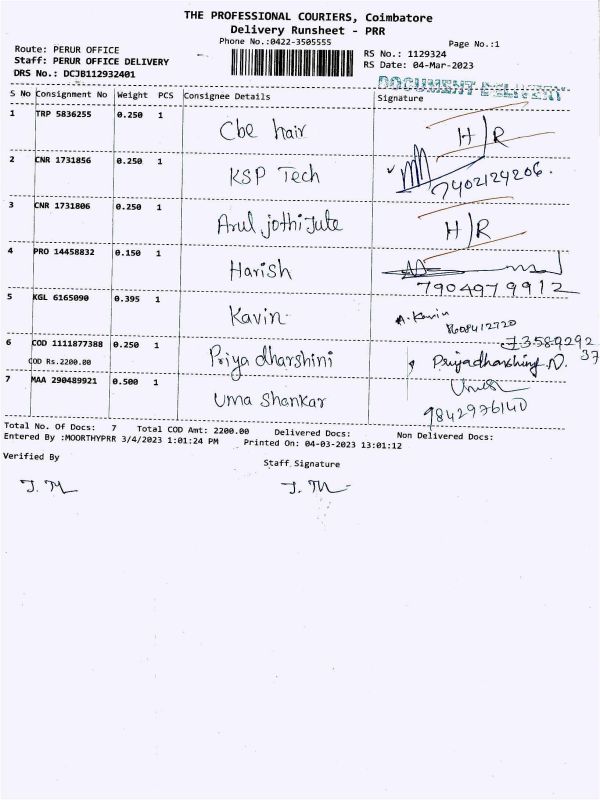 THE PROFESSIONAL COURIERS, Coimbatore
Delivery Runsheet - PRR
Phone No.:0422-3505555
Page No.:1
Route: PERUR OFFICE
Staff: PERUR OFFICE DELIVERY
DRS No.: DCJB112932401
RS No.: 1129324
RS Date: 04-Mar-2023
DOCUMENT DELIVERY
S No Consignment No Weight PCS Consignee Details Signature
1 TRP 5836255 0.250 1 Cbe hair H/R
2 CNR 1731856 0.250 1 KSP Tech 7402124206.
3 CNR 1731806 0.250 1 Arul jothi Jute H/R
4 PRO 14458832 0.150 1 Harish
7904979912
5 KGL 6165090 0.395 1 Kavin A. Kavin
8608412720
6 COD 1111877388 0.250 1 Priya dharshini Priyadharshini .N.
7358929237
COD Rs.2200.00
7 MAA 290489921 0.500 1 Uma Shankar Umesh
9842976140
Total No. Of Docs: 7 Total COD Amt: 2200.00 Delivered Docs: Non Delivered Docs:
Entered By :MOORTHYPRR 3/4/2023 1:01:24 PM Printed On: 04-03-2023 13:01:12
Verified By
Staff Signature